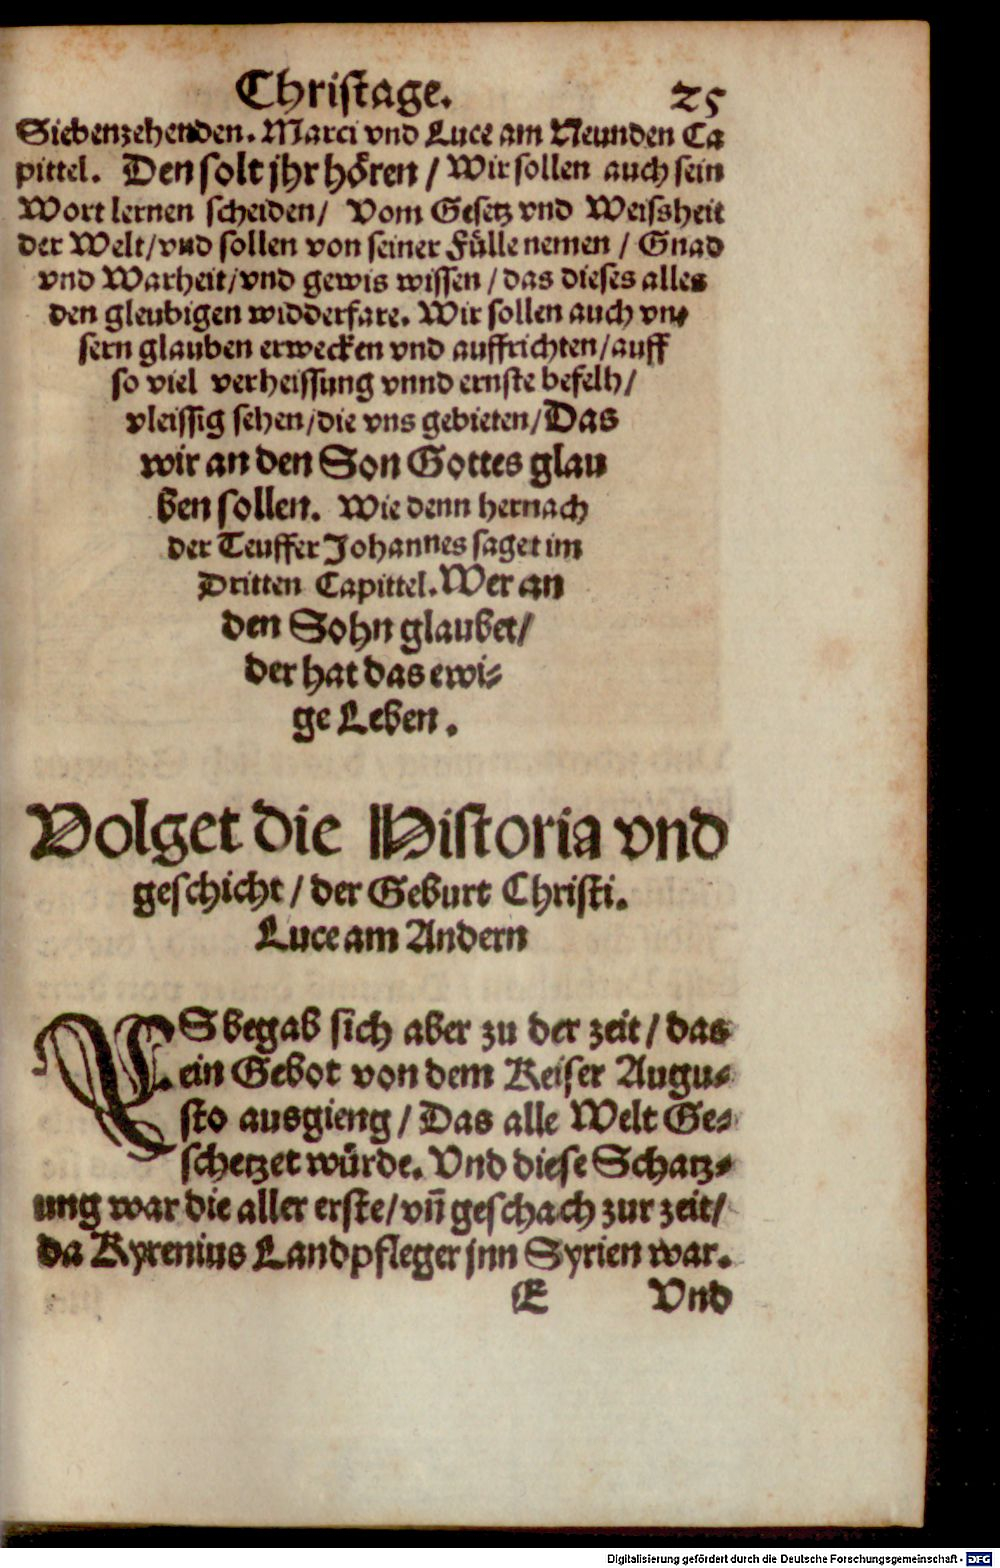 Christage. 25
Siebenzehenden. Marci vnd Luce am Neunden Ca
pittel. Den solt jhr hören / Wir sollen auch sein
Wort lernen scheiden / Vom Gesetz vnd Weissheit
der Welt / vnd sollen von seiner Fülle nemen / Gnad
vnd Warheit / vnd gewis wissen / das dieses alles
den gleubigen widderfare. Wir sollen auch vn⸗
sern glauben erwecken vnd auffrichten / auff
so viel verheissung vnnd ernste befelh /
vleissig sehen / die vns gebieten / Das
wir an den Son Gottes glau
ben sollen. Wie denn hernach
der Teuffer Johannes saget im
Dritten Capittel. Wer an
den Sohn glaubet /
der hat das ewi⸗
ge Leben.
Volget die Historia vnd
geschicht / der Geburt Christi.
Luce am Andern
ES begab sich aber zu der zeit / das
ein Gebot von dem Keiser Augu⸗
sto ausgieng / Das alle Welt Ge⸗
schetzet würde. Vnd diese Schatz⸗
ung war die aller erste / vñ geschach zur zeit /
da Kyrenius Landpfleger jnn Syrien war.
E Vnd
Digitalisierung gefördert durch die Deutsche Forschungsgemeinschaft - DFG